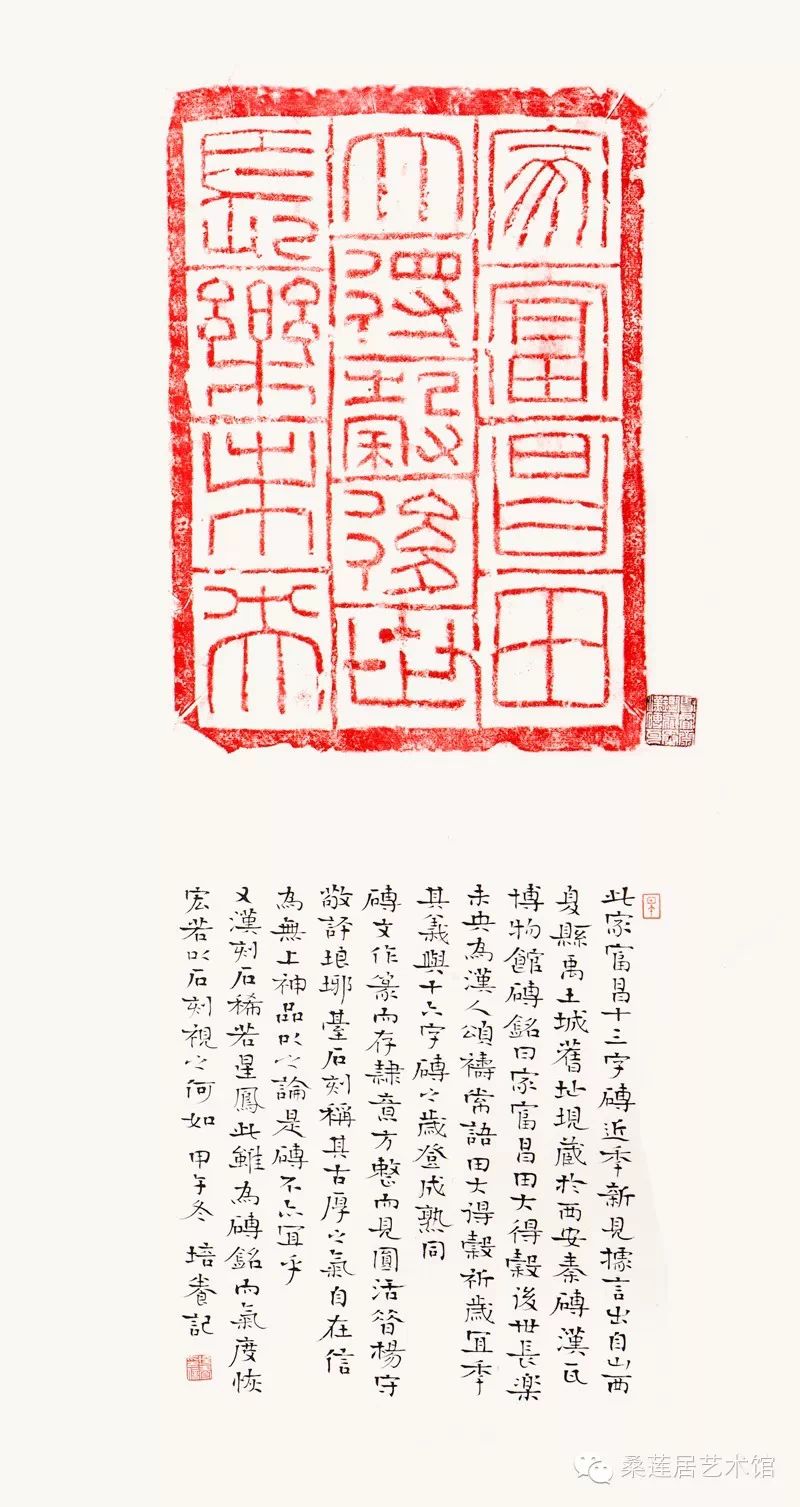 家富昌田
大得穀後世
長樂未央
此家富昌十三字磚近秊新見據言出自山西
夏縣禹王城舊址現藏於西安秦磚漢瓦
博物館磚銘曰家富昌田大得穀後世長楽
未央為漢人頌禱常語田大得穀祈歲宜秊
其義與十六字磚之歲登成熟同
磚文作篆而存隸意方整而見圓活昔楊守
敬評琅邪臺石刻稱其古厚之氣自在信
為無上神品以之論是磚不亦宜乎
又漢刻石稀若星鳳此雖為磚銘而氣度恢
宏若以石刻視之何如 甲午冬 培養記
桑莲居艺术馆